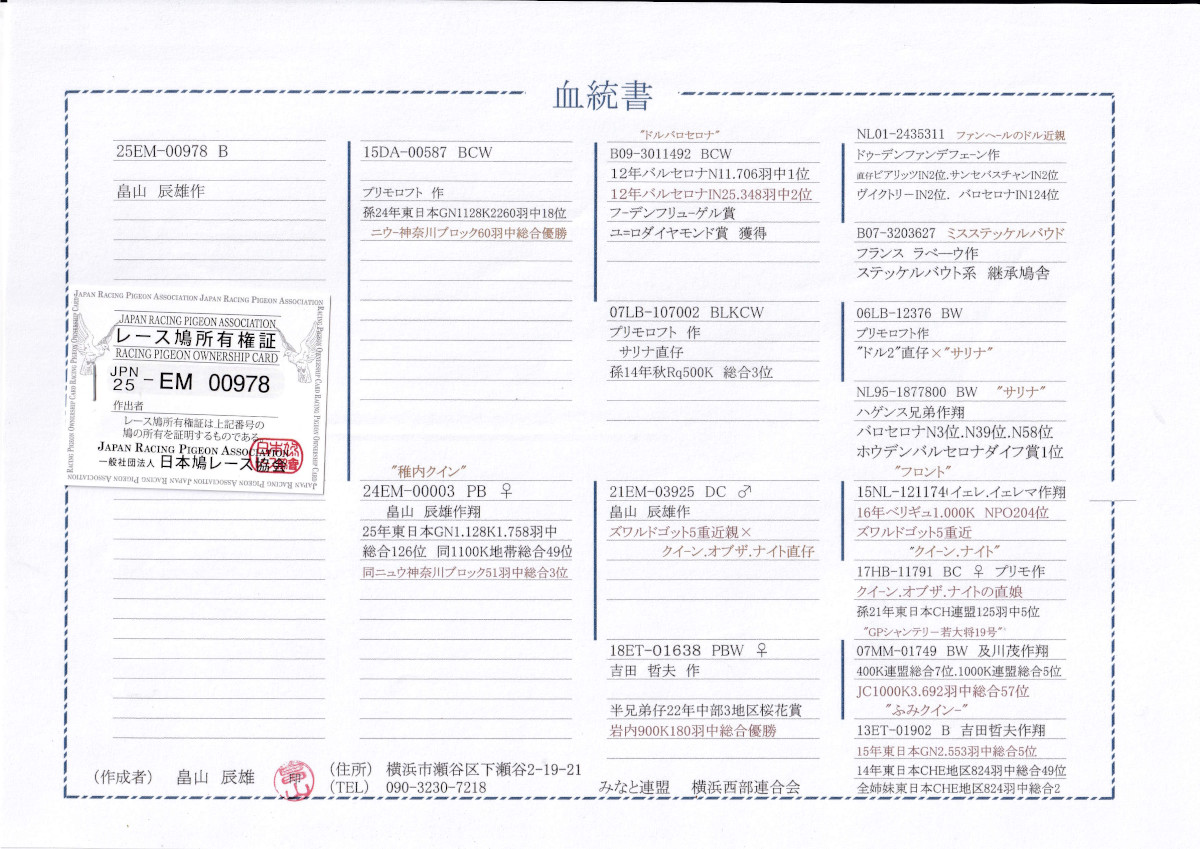 血統書
25EM-00978 B
畠山 辰雄作
JAPAN RACING PIGEON ASSOCIATION JAPAN RACING PIGEON ASSOCIATION
JAPAN RACING PIGEON ASSOCIATION
レース鳩所有権証
RACING PIGEON OWNERSHIP CARD
JPN
25 - EM 00978
作出者
レース鳩所有権証は上記番号の
鳩の所有を証明するものである
JAPAN RACING PIGEON ASSOCIATION
一般社団法人 日本鳩レース協会
15DA-00587 BCW
プリモロフト 作
孫24年東日本GN1128K2260羽中18位
ニウー神奈川ブロック60羽中総合優勝
"稚内クイン"
24EM-00003 PB ♀
畠山 辰雄作翔
25年東日本GN1.128K1.758羽中
総合126位 同1100K地帯総合49位
同ニュウ神奈川ブロック51羽中総合3位
"ドルバロセロナ"
B09-3011492 BCW
12年バルセロナN11.706羽中1位
12年バルセロナIN25.348羽中2位
フーデンフリューゲル賞
ユーロダイヤモンド賞 獲得
07LB-107002 BLKCW
プリモロフト 作
サリナ直仔
孫14年秋Rq500K 総合3位
21EM-03925 DC ♂
畠山 辰雄作
ズワルドゴット5重近親×
クイーン.オブザ.ナイト直仔
18ET-01638 PBW ♀
吉田 哲夫 作
半兄弟仔22年中部3地区桜花賞
岩内900K180羽中総合優勝
NL01-2435311 ファンヘールのドル近親
ドゥーデンファンデフェーン作
直仔ビアリッツIN2位.サンセバスチャンIN2位
ヴイクトリーIN2位. バロセロナIN124位
B07-3203627 ミスステッケルバウド
フランス ラベーウ作
ステッケルバウト系 継承鳩舎
06LB-12376 BW
プリモロフト作
"ドル2"直仔×"サリナ"
NL95-1877800 BW "サリナ"
ハゲンス兄弟作翔
バロセロナN3位.N39位.N58位
ホウデンバルセロナダイフ賞1位
"フロント"
15NL-121174 イェレ.イェレマ作翔
16年ベリギュ1.000K NPO204位
ズワルドゴット5重近
"クイーン.ナイト"
17HB-11791 BC ♀ プリモ作
クイーン.オブザ.ナイトの直娘
孫21年東日本CH連盟125羽中5位
"GPシャンテリー若大将19号"
07MM-01749 BW 及川茂作翔
400K連盟総合7位.1000K連盟総合5位
JC1000K3.692羽中総合57位
"ふみクイン-"
13ET-01902 B 吉田哲夫作翔
15年東日本GN2.553羽中総合5位
14年東日本CHE地区824羽中総合49位
全姉妹東日本CHE地区824羽中総合2
(作成者) 畠山 辰雄 畠山 印
(住所) 横浜市瀬谷区下瀬谷2-19-21
(TEL) 090-3230-7218
みなと連盟 横浜西部連合会